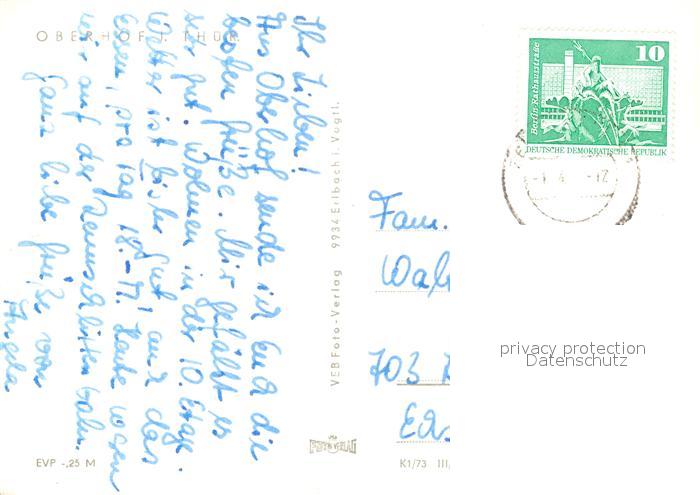 OBERHOF I. THÜR.
Ihr Lieben!
Aus Oberhof sende ich Euch die
besten Grüße. Mir gefällt es
sehr gut. Wohnen in der 10. Etage.
Wetter ist bisher gut auch das
Essen, pro Tag 18,- M! Heute waren
wir auf der Rennschlittenbahn.
Ganz liebe Grüße von
Angela
VEB Foto-Verlag 9934 Erlbach i. Vogtl.
EVP -,25 M
FOTO VERLAG
K1/73 III/
10
Berlin-Rathausstraße
DEUTSCHE DEMOKRATISCHE REPUBLIK
-1. 4. -12
Fam.
Wal
703
privacy protection
Datenschutz